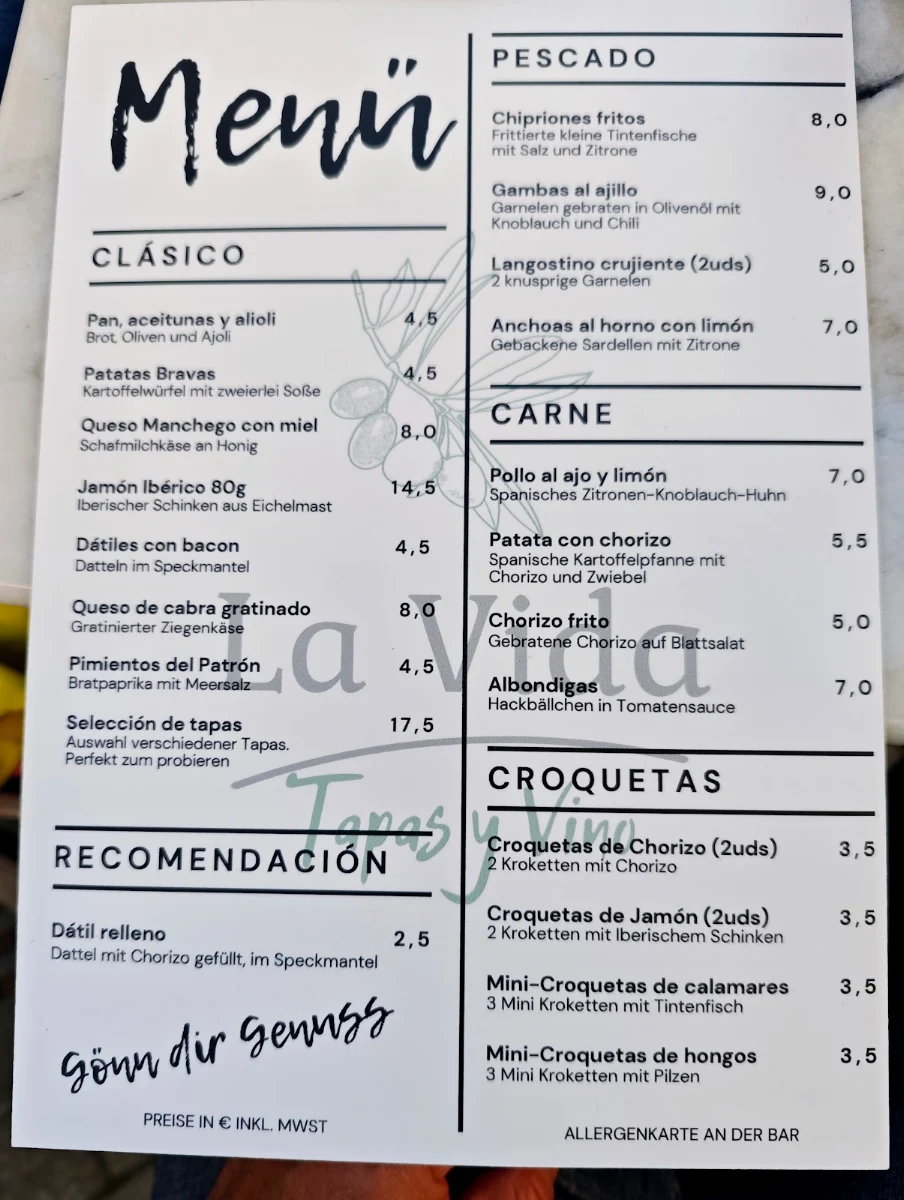 Menü
CLÁSICO
Pan, aceitunas y alioli 4,5
Brot, Oliven und Ajoli
Patatas Bravas 4,5
Kartoffelwürfel mit zweierlei Soße
Queso Manchego con miel 8,0
Schafmilchkäse an Honig
Jamón Ibérico 80g 14,5
Iberischer Schinken aus Eichelmast
Dátiles con bacon 4,5
Datteln im Speckmantel
Queso de cabra gratinado 8,0
Gratinierter Ziegenkäse
Pimientos del Patrón 4,5
Bratpaprika mit Meersalz
Selección de tapas 17,5
Auswahl verschiedener Tapas.
Perfekt zum probieren
RECOMENDACIÓN
Dátil relleno 2,5
Dattel mit Chorizo gefüllt, im Speckmantel
Gönn dir Genuss
PREISE IN € INKL. MWST
PESCADO
Chipriones fritos 8,0
Frittierte kleine Tintenfische
mit Salz und Zitrone
Gambas al ajillo 9,0
Garnelen gebraten in Olivenöl mit
Knoblauch und Chili
Langostino crujiente (2uds) 5,0
2 knusprige Garnelen
Anchoas al horno con limón 7,0
Gebackene Sardellen mit Zitrone
CARNE
Pollo al ajo y limón 7,0
Spanisches Zitronen-Knoblauch-Huhn
Patata con chorizo 5,5
Spanische Kartoffelpfanne mit
Chorizo und Zwiebel
Chorizo frito 5,0
Gebratene Chorizo auf Blattsalat
Albondigas 7,0
Hackbällchen in Tomatensauce
CROQUETAS
Croquetas de Chorizo (2uds) 3,5
2 Kroketten mit Chorizo
Croquetas de Jamón (2uds) 3,5
2 Kroketten mit Iberischem Schinken
Mini-Croquetas de calamares 3,5
3 Mini Kroketten mit Tintenfisch
Mini-Croquetas de hongos 3,5
3 Mini Kroketten mit Pilzen
ALLERGENKARTE AN DER BAR
La Vida
Tapas y Vino